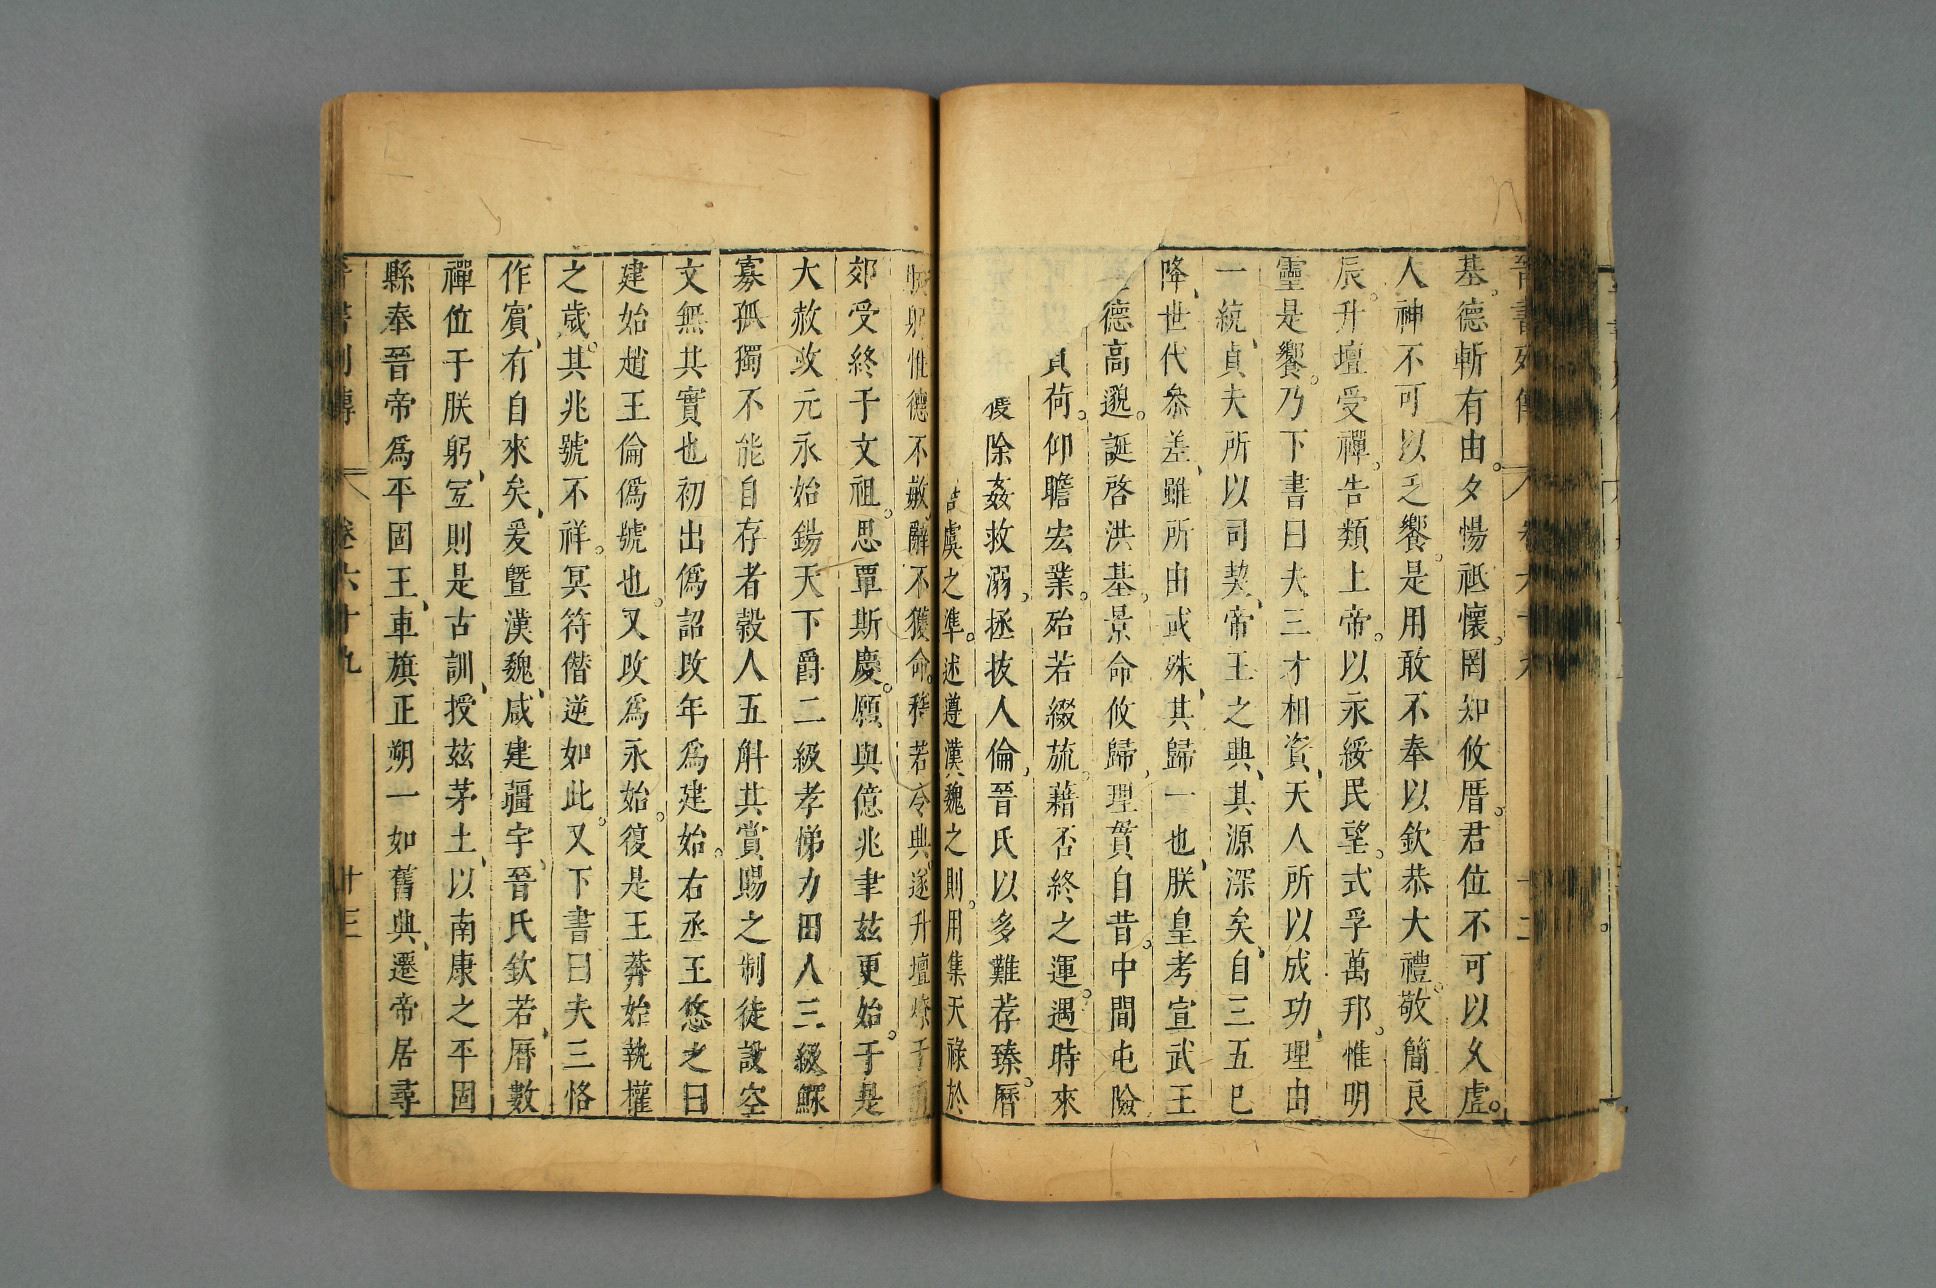 晉書列傳 卷六十九 十二
基。德漸有由。夕惕祗懷。罔知攸厝。君位不可以久虛。
人神不可以乏饗。是用敢不奉以欽恭大禮。敬簡良
辰。升壇受禪。告類上帝。以永綏民望。式孚萬邦。惟明
靈是饗。乃下書曰夫三才相資、天人所以成功、理由
一統、貞夫所以司契、帝王之典、其源深矣、自三五已
降、世代叅差、雖所由或殊、其歸一也、朕皇考宣武王
德高邈。誕啓洪基。景命攸歸、理貫自昔。中間屯險
負荷。仰瞻宏業。殆若綴旒。藉否終之運。遇時來
除姦救溺、拯拔人倫、晉氏以多難荐臻。曆
虞之準。述遵漢魏之則。用集天祿於
朕躬惟德不敏辭不獲命。稽若令典、遂升壇燎于
郊受終于文祖。思覃斯慶。願與億兆聿茲更始。于是
大赦改元永始鍚天下爵二級孝悌力田人三級鰥
寡孤獨不能自存者穀人五斛其賞賜之制徒設空
文無其實也初出僞詔改年爲建始。右丞王悠之曰
建始趙王倫僞號也。又改爲永始。復是王莽始執權
之歲。其兆號不祥。冥符僭逆如此。又下書曰夫三恪
作賓、有自來矣、爰曁漢魏、咸建疆宇、晉氏欽若、曆數
禪位于朕躬、宜則是古訓、授茲茅土、以南康之平固
縣奉晉帝爲平固王、車旗正朔一如舊典、遷帝居尋
晉書列傳 卷六十九 十三